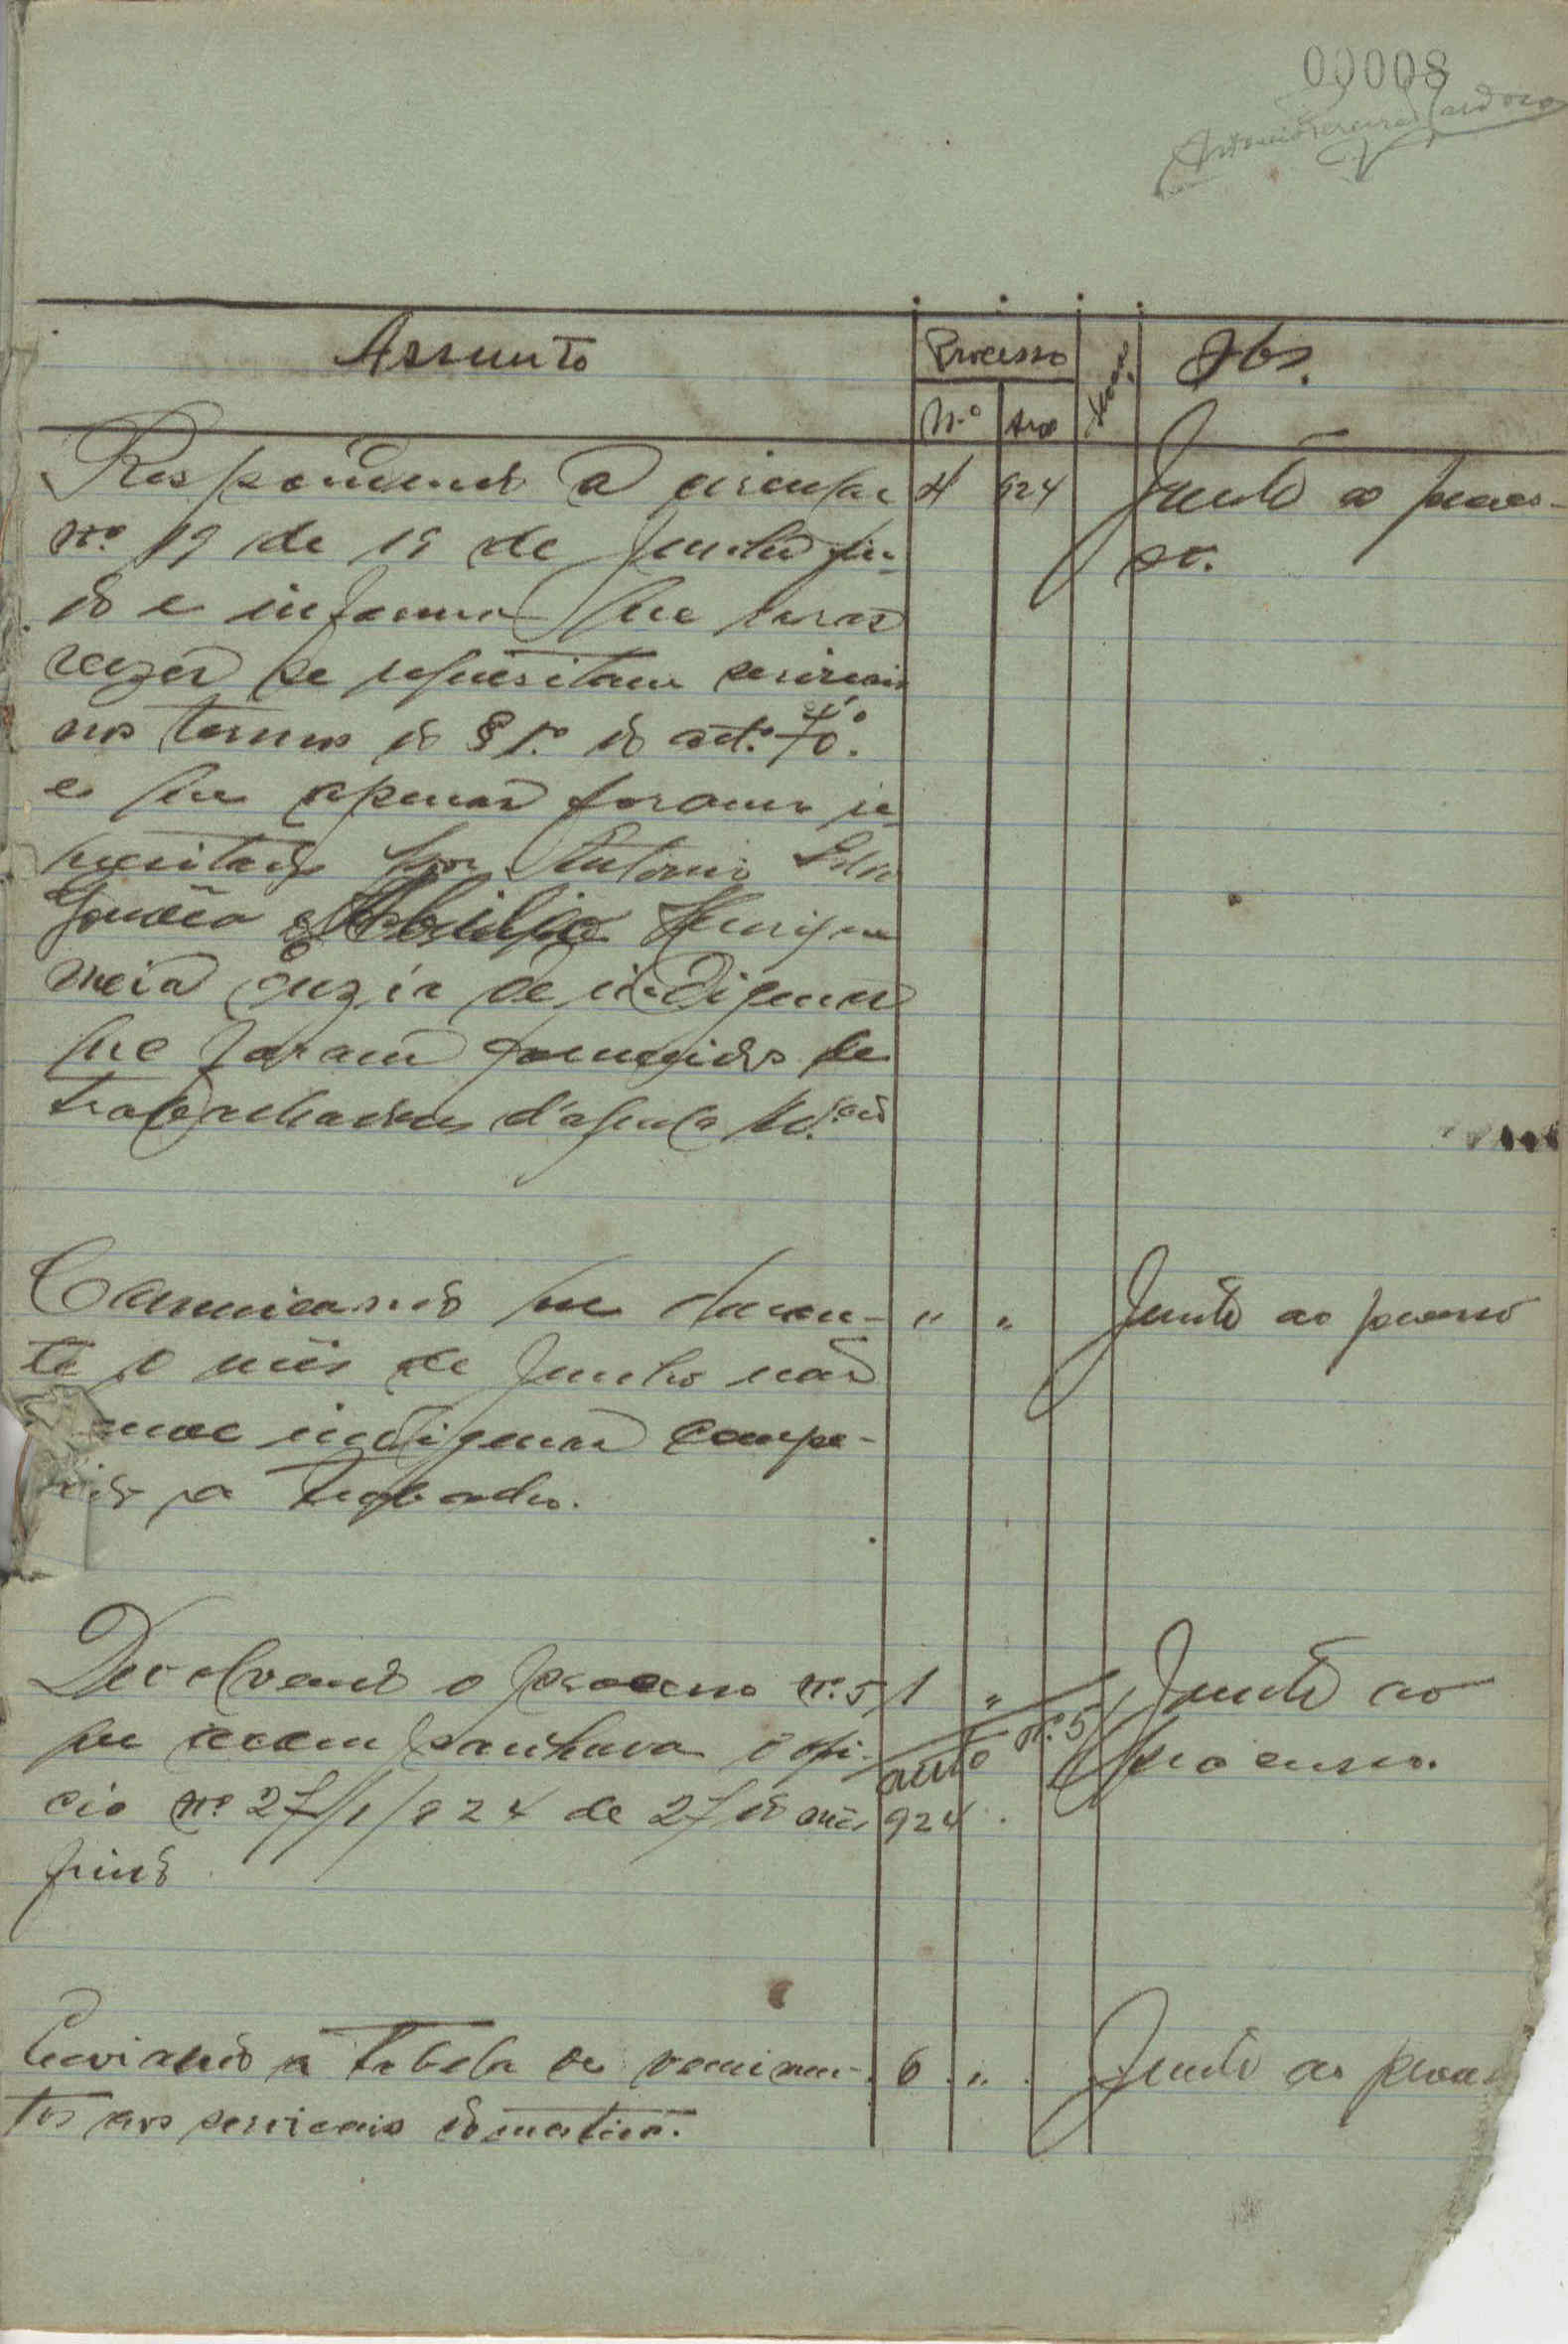 00008
Antonio Pereira Cardoso
Assunto
Processo
Nº
Ano
Obs.
Respondendo a circular
nº 19 de 19 de Junho fin-
do e informa que raras
vezes se requesitam serviçais
nos termos do § 1.º do art.º 70º.
e que apenas foram re
quesitados por Antonio
Abilio Henriques
meia duzia de indigenas
que foram fornecidos de
trabalhadores d'aquela
4
924
Junto ao proces-
so.
Comunicando que duran-
te o mês de Junho não
indigenas compe-
lidos a trabalho.
"
"
Junto ao processo
Devolvendo o processo nº 5
que acompanhava o ofi-
cio nº 27/1/924 de 27 do mês
findo
1
"
auto nº 5/
924
Junto ao
processo.
Enviando a tabela de vencimen-
tos aos serviçais domesticos.
6
"
Junto ao proces